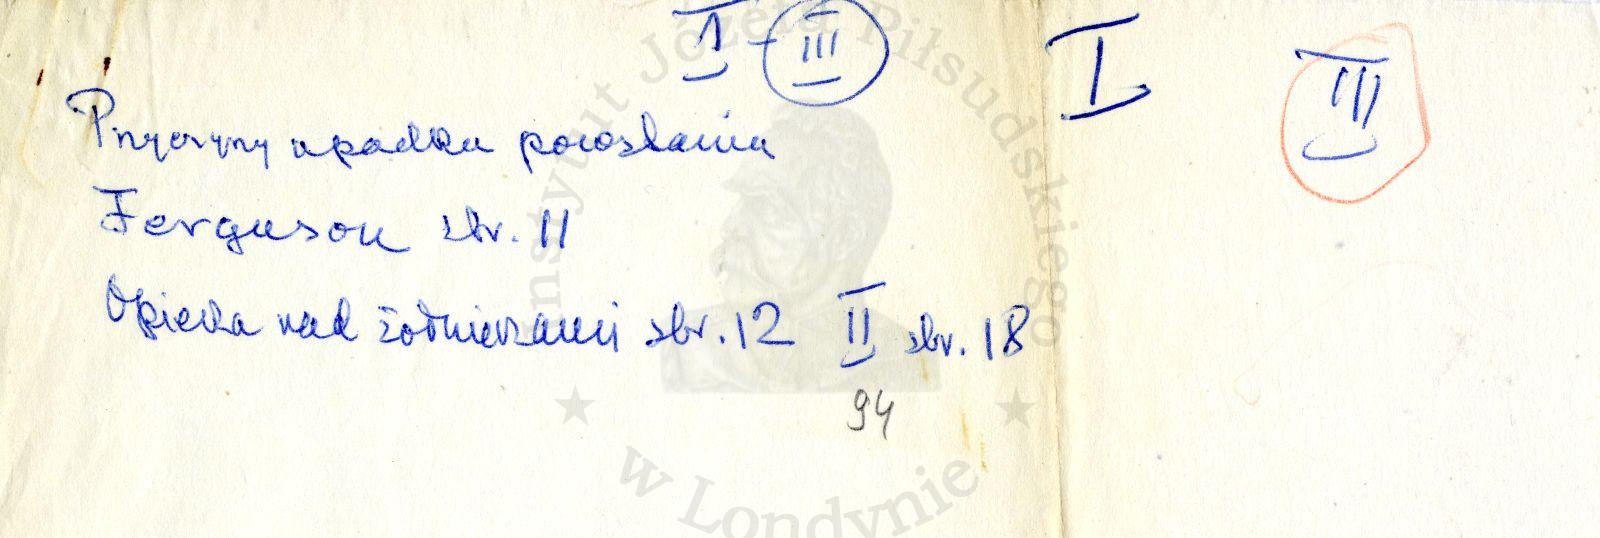 I - III
I
III
Przyczyny upadku powstania
Ferguson str. 11
Opieka nad żołnierzami str. 12 II str. 18
94
Instytut Józefa Piłsudskiego
w Londynie